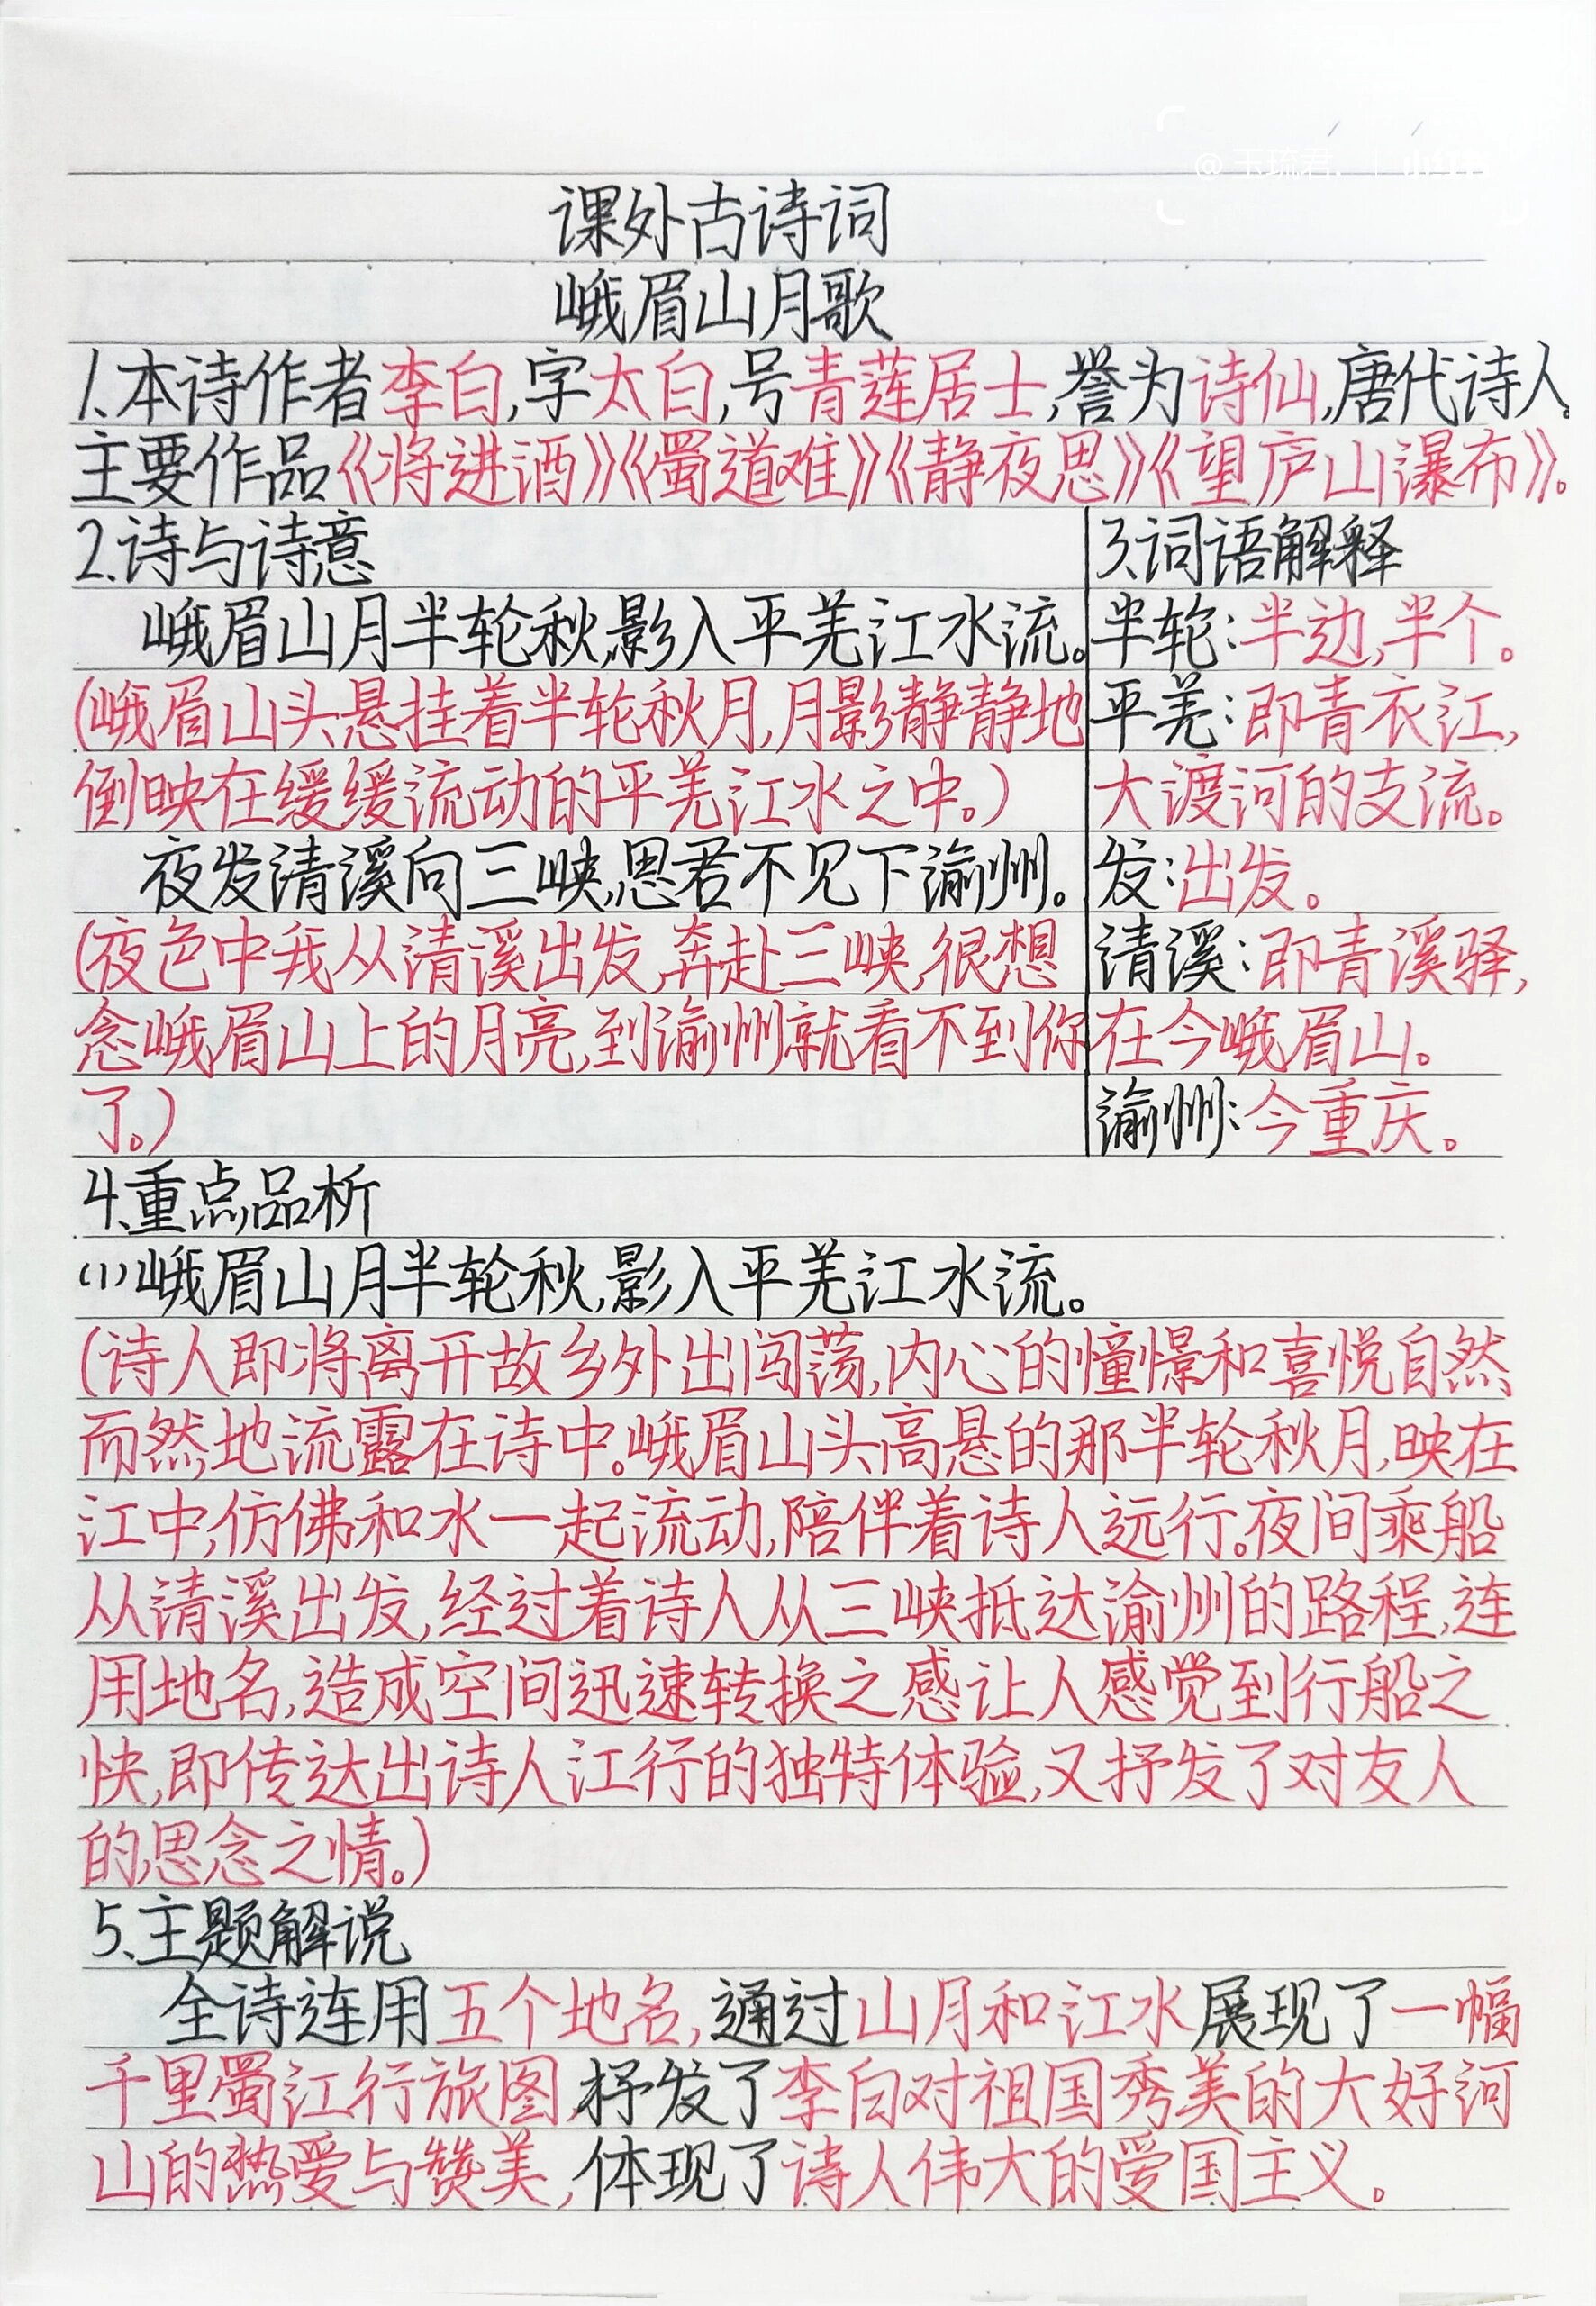 @玉琉君
课外古诗词
峨眉山月歌
1、本诗作者李白,字太白,号青莲居士,誉为诗仙,唐代诗人。
主要作品《将进酒》《蜀道难》《静夜思》《望庐山瀑布》。
2.诗与诗意
峨眉山月半轮秋,影入平羌江水流。
(峨眉山头悬挂着半轮秋月,月影静静地
倒映在缓缓流动的平羌江水之中。)
夜发清溪向三峡,思君不见下渝州。
(夜色中我从清溪出发,奔赴三峡,很想
念峨眉山上的月亮,到渝州就看不到你
了。)
3、词语解释
半轮:半边,半个。
平羌:即青衣江,
大渡河的支流。
发:出发。
清溪:即青溪驿,
在今峨眉山。
渝州:今重庆。
4、重点品析
(1)峨眉山月半轮秋,影入平羌江水流。
(诗人即将离开故乡外出闯荡,内心的憧憬和喜悦自然
而然地流露在诗中。峨眉山头高悬的那半轮秋月,映在
江中,仿佛和水一起流动,陪伴着诗人远行。夜间乘船
从清溪出发,经过着诗人从三峡抵达渝州的路程,连
用地名,造成空间迅速转换之感让人感觉到行船之
快,即传达出诗人江行的独特体验,又抒发了对友人
的思念之情。)
5、主题解说
全诗连用五个地名,通过山月和江水展现了一幅
千里蜀江行旅图,抒发了李白对祖国秀美的大好河
山的热爱与赞美,体现了诗人伟大的爱国主义。